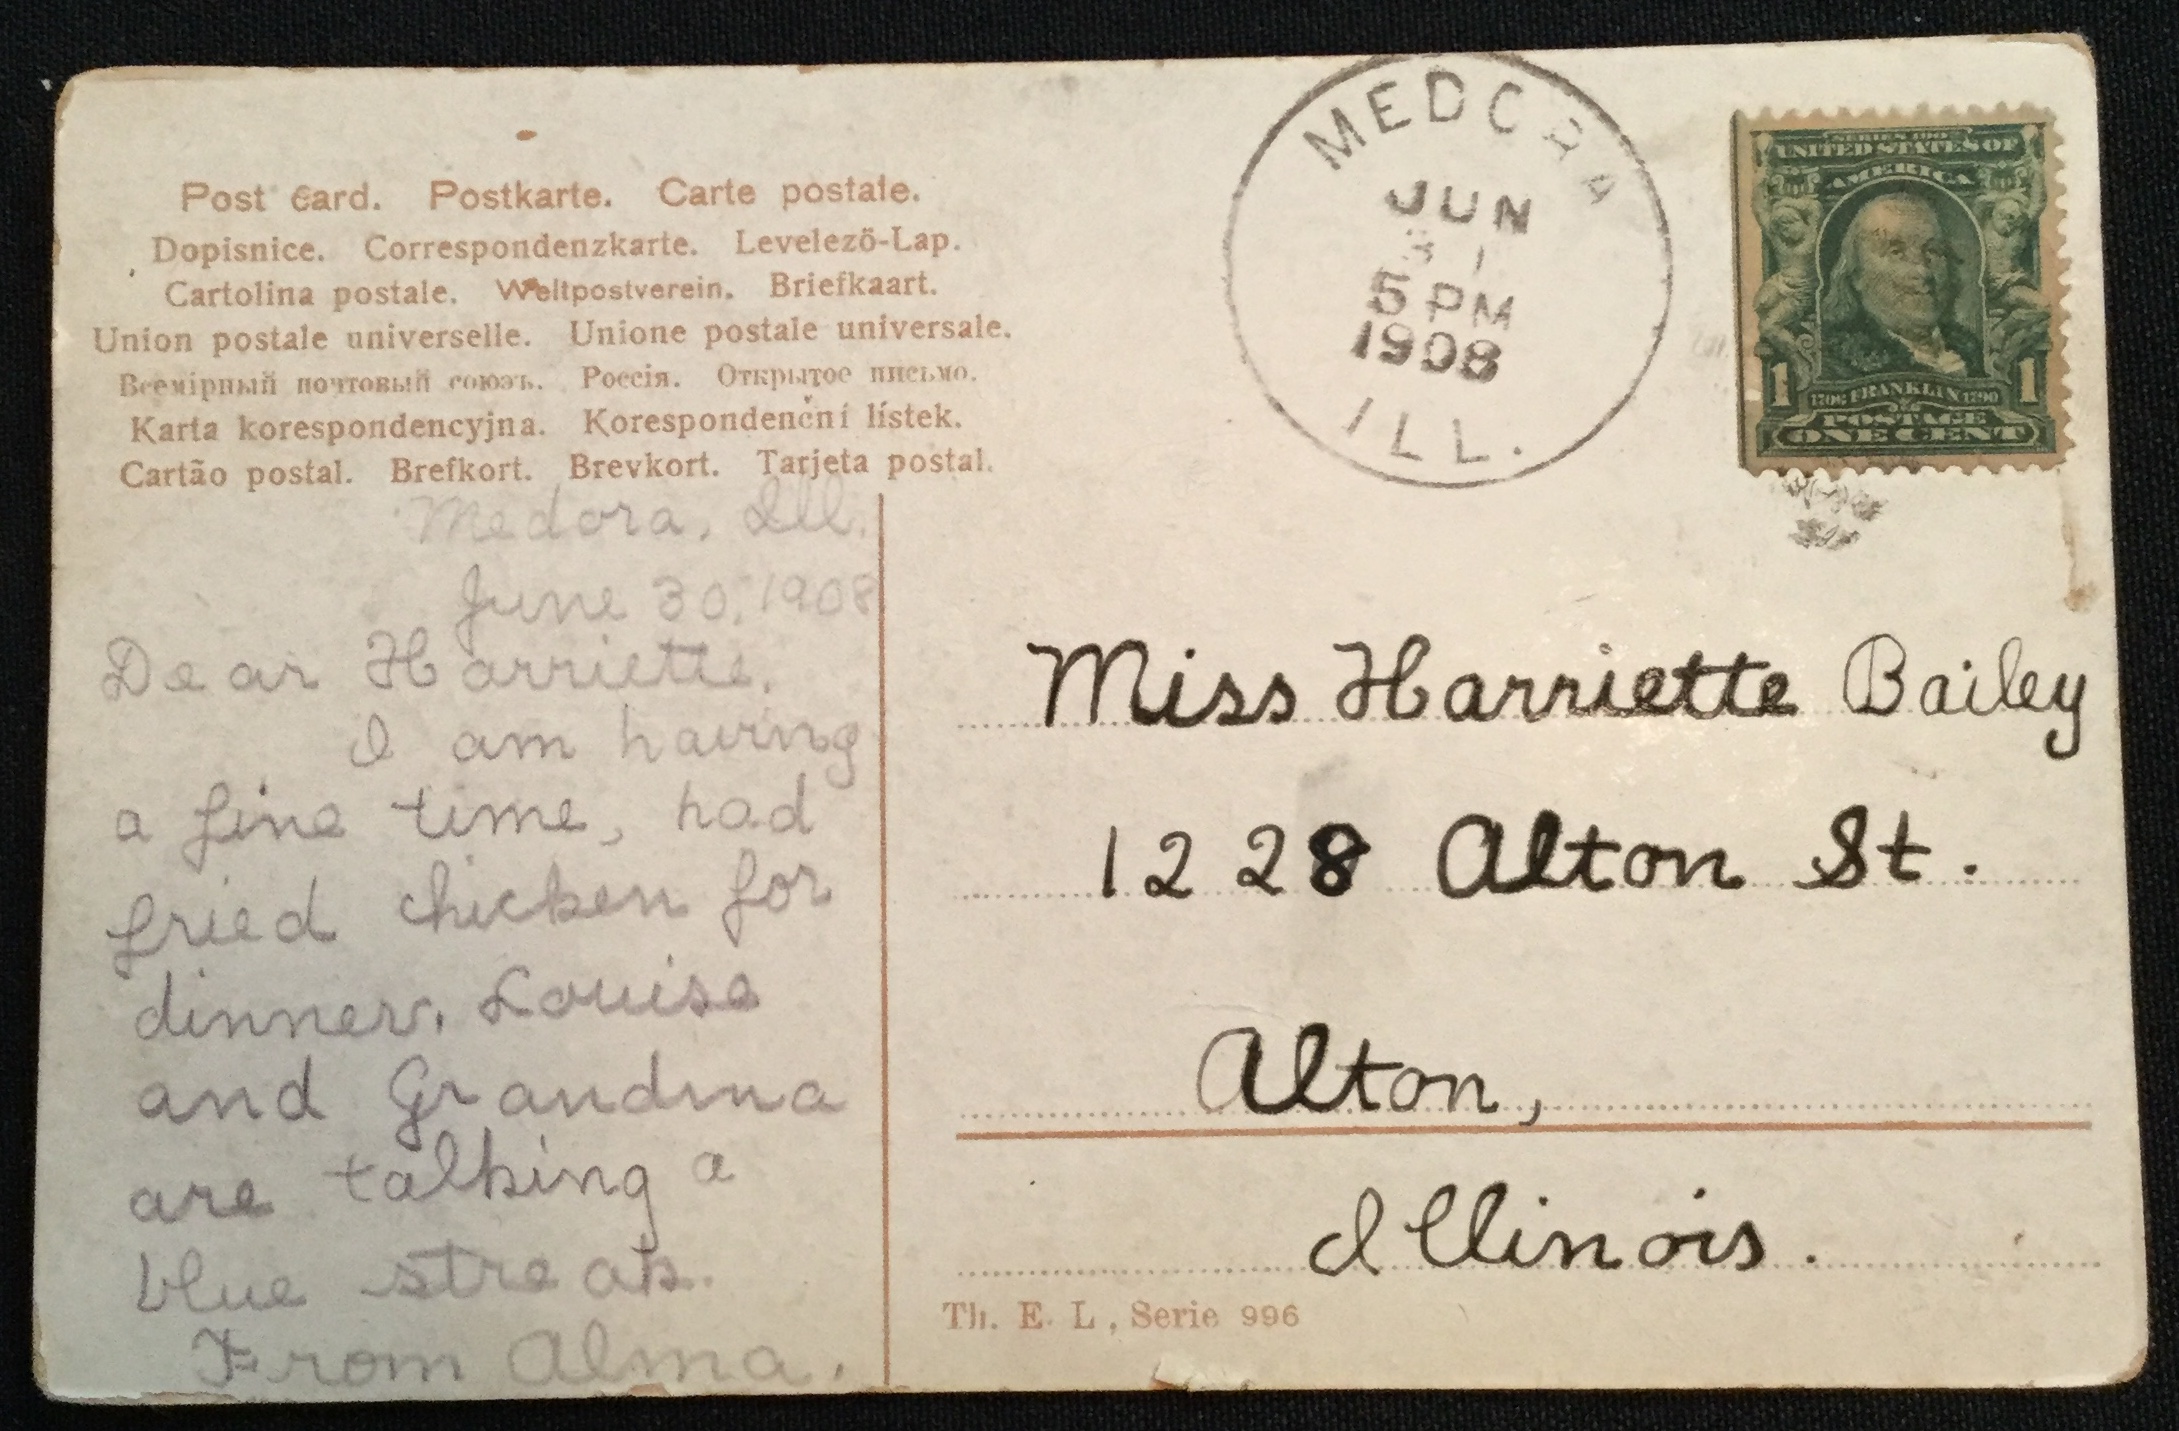 Post card. Postkarte. Carte postale.
Dopisnice. Correspondenzkarte. Levelező-Lap.
Cartolina postale. Weltpostverein. Briefkaart.
Union postale universelle. Unione postale universale.
Всемірный почтовый союзъ. Россія. Открытое письмо.
Karta korespondencyjna. Korespondenční lístek.
Cartão postal. Brefkort. Brevkort. Tarjeta postal.
Medora, Ill.
June 30, 1908
Dear Harriette,
I am having
a fine time, had
fried chicken for
dinner. Louise
and Grandma
are talking a
blue streak.
From Alma.
MEDORA
JUN
5 PM
1908
ILL.
SERIES 1902
UNITED STATES OF
AMERICA
1 1
1706 FRANKLIN 1790
POSTAGE
ONE CENT
Miss Harriette Bailey
1228 Alton St.
Alton,
Illinois.
Th. E. L., Serie 996